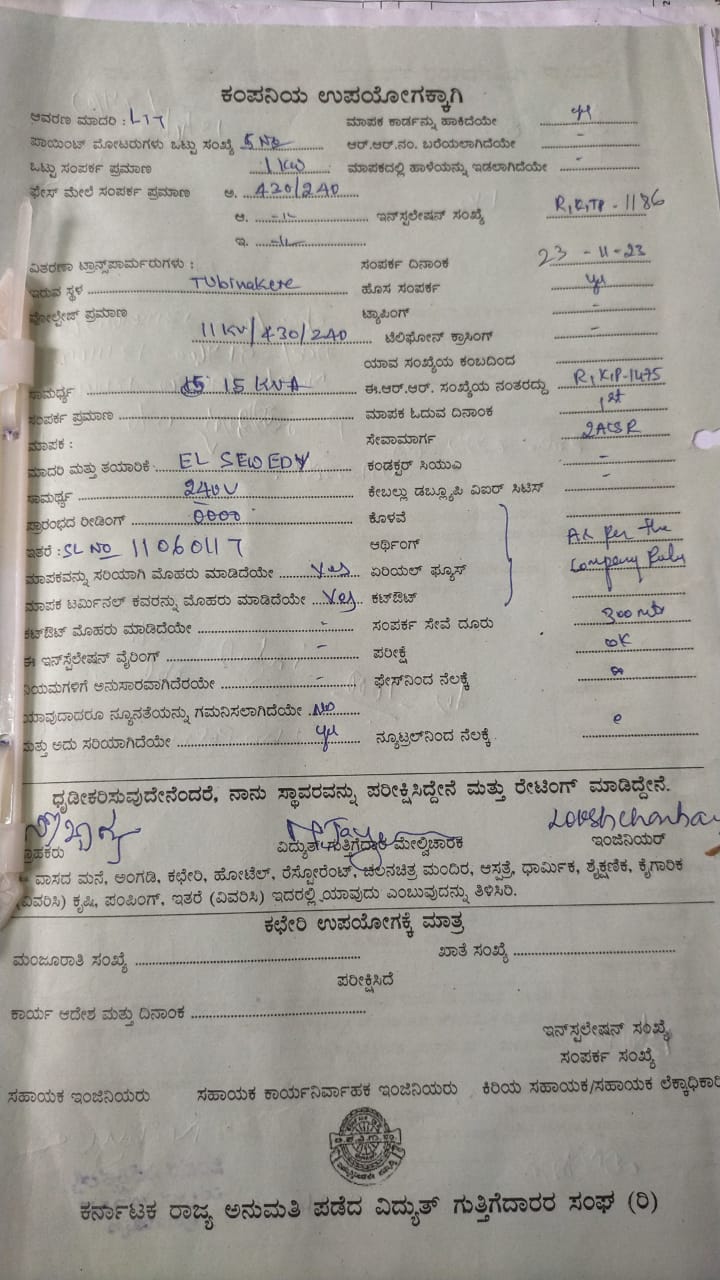 ಕಂಪನಿಯ ಉಪಯೋಗಕ್ಕಾಗಿ
ಆವರಣ ಮಾದರಿ : ಮಾಪಕ ಕಾರ್ಡನ್ನು ಹಾಕಿದೆಯೇ yes
ಪಾಯಿಂಟ್ ಮೋಟರುಗಳು ಒಟ್ಟು ಸಂಖ್ಯೆ 5 No ಆರ್.ಆರ್.ನಂ. ಬರೆಯಲಾಗಿದೆಯೇ -
ಒಟ್ಟು ಸಂಪರ್ಕ ಪ್ರಮಾಣ 1 KW ಮಾಪಕದಲ್ಲಿ ಹಾಳೆಯನ್ನು ಇಡಲಾಗಿದೆಯೇ -
ಫೇಸ್ ಮೇಲೆ ಸಂಪರ್ಕ ಪ್ರಮಾಣ ಅ. 420/240
ಆ. -"- ಇನ್‌ಸ್ಟಲೇಷನ್ ಸಂಖ್ಯೆ R,K,TP-1186
ಇ. -"-
ವಿತರಣಾ ಟ್ರಾನ್ಸ್‌ಪಾರ್ಮರುಗಳು : ಸಂಪರ್ಕ ದಿನಾಂಕ 23-11-23
ಇರುವ ಸ್ಥಳ Tubinakere ಹೊಸ ಸಂಪರ್ಕ yes
ವೋಲ್ಟೇಜ್ ಪ್ರಮಾಣ ಟ್ಯಾಪಿಂಗ್ -
11KV/430/240 ಟೆಲಿಫೋನ್ ಕ್ರಾಸಿಂಗ್ -
ಯಾವ ಸಂಖ್ಯೆಯ ಕಂಬದಿಂದ -
ಸಾಮರ್ಥ್ಯ 15 KVA ಈ.ಆರ್.ಆರ್. ಸಂಖ್ಯೆಯ ನಂತರದ್ದು R,K,P-1475
ಸಂಪರ್ಕ ಪ್ರಮಾಣ ಮಾಪಕ ಓದುವ ದಿನಾಂಕ 1st
ಮಾಪಕ : ಸೇವಾಮಾರ್ಗ 2ACSR
ಮಾದರಿ ಮತ್ತು ತಯಾರಿಕೆ EL SEWEDY ಕಂಡಕ್ಟರ್ ಸಿಯುಎ -
ಸಾಮರ್ಥ್ಯ 240V ಕೇಬಲ್ಲು ಡಬ್ಲ್ಯೂಪಿ ವಿಐರ್ ಸಿಟಿಸ್ -
ಪ್ರಾರಂಭದ ರೀಡಿಂಗ್ 0000 ಕೊಳವೆ
ಇತರೆ : SL NO 11060117 ಆರ್ಥಿಂಗ್ As per the
ಮಾಪಕವನ್ನು ಸರಿಯಾಗಿ ಮೊಹರು ಮಾಡಿದೆಯೇ Yes ಏರಿಯಲ್ ಫ್ಯೂಸ್ Company Rules
ಮಾಪಕ ಟರ್ಮಿನಲ್ ಕವರನ್ನು ಮೊಹರು ಮಾಡಿದೆಯೇ Yes ಕಟ್‌ಔಟ್
ಕಟ್‌ಔಟ್ ಮೊಹರು ಮಾಡಿದೆಯೇ - ಸಂಪರ್ಕ ಸೇವೆ ದೂರು 300 mtr
ಈ ಇನ್‌ಸ್ಟಲೇಷನ್ ವೈರಿಂಗ್ - ಪರೀಕ್ಷೆ
ನಿಯಮಗಳಿಗೆ ಅನುಸಾರವಾಗಿದೆರಯೇ - ಫೇಸ್‌ನಿಂದ ನೆಲಕ್ಕೆ
ಯಾವುದಾದರೂ ನ್ಯೂನತೆಯನ್ನು ಗಮನಿಸಲಾಗಿದೆಯೇ No
ಮತ್ತು ಅದು ಸರಿಯಾಗಿದೆಯೇ yes ನ್ಯೂಟ್ರಲ್‌ನಿಂದ ನೆಲಕ್ಕೆ
ಧೃಡೀಕರಿಸುವುದೇನೆಂದರೆ, ನಾನು ಸ್ಥಾವರವನ್ನು ಪರೀಕ್ಷಿಸಿದ್ದೇನೆ ಮತ್ತು ರೇಟಿಂಗ್ ಮಾಡಿದ್ದೇನೆ.
ಗ್ರಾಹಕರು ವಿದ್ಯುತ್ ಗುತ್ತಿಗೆದಾರ ಮೇಲ್ವಿಚಾರಕ ಇಂಜಿನಿಯರ್
ವಾಸದ ಮನೆ, ಅಂಗಡಿ, ಕಛೇರಿ, ಹೋಟೆಲ್, ರೆಸ್ಟೋರೆಂಟ್, ಚಲನಚಿತ್ರ ಮಂದಿರ, ಆಸ್ಪತ್ರೆ, ಧಾರ್ಮಿಕ, ಶೈಕ್ಷಣಿಕ, ಕೈಗಾರಿಕ
(ವಿವರಿಸಿ) ಕೃಷಿ, ಪಂಪಿಂಗ್, ಇತರೆ (ವಿವರಿಸಿ) ಇದರಲ್ಲಿ ಯಾವುದು ಎಂಬುವುದನ್ನು ತಿಳಿಸಿರಿ.
ಕಛೇರಿ ಉಪಯೋಗಕ್ಕೆ ಮಾತ್ರ
ಮಂಜೂರಾತಿ ಸಂಖ್ಯೆ ಖಾತೆ ಸಂಖ್ಯೆ
ಪರೀಕ್ಷಿಸಿದೆ
ಕಾರ್ಯ ಆದೇಶ ಮತ್ತು ದಿನಾಂಕ
ಇನ್‌ಸ್ಟಲೇಷನ್ ಸಂಖ್ಯೆ
ಸಂಪರ್ಕ ಸಂಖ್ಯೆ
ಸಹಾಯಕ ಇಂಜಿನಿಯರು ಸಹಾಯಕ ಕಾರ್ಯನಿರ್ವಾಹಕ ಇಂಜಿನಿಯರು ಕಿರಿಯ ಸಹಾಯಕ/ಸಹಾಯಕ ಲೆಕ್ಕಾಧಿಕಾರಿ
ಕರ್ನಾಟಕ ರಾಜ್ಯ ಅನುಮತಿ ಪಡೆದ ವಿದ್ಯುತ್ ಗುತ್ತಿಗೆದಾರರ ಸಂಘ (ರಿ)